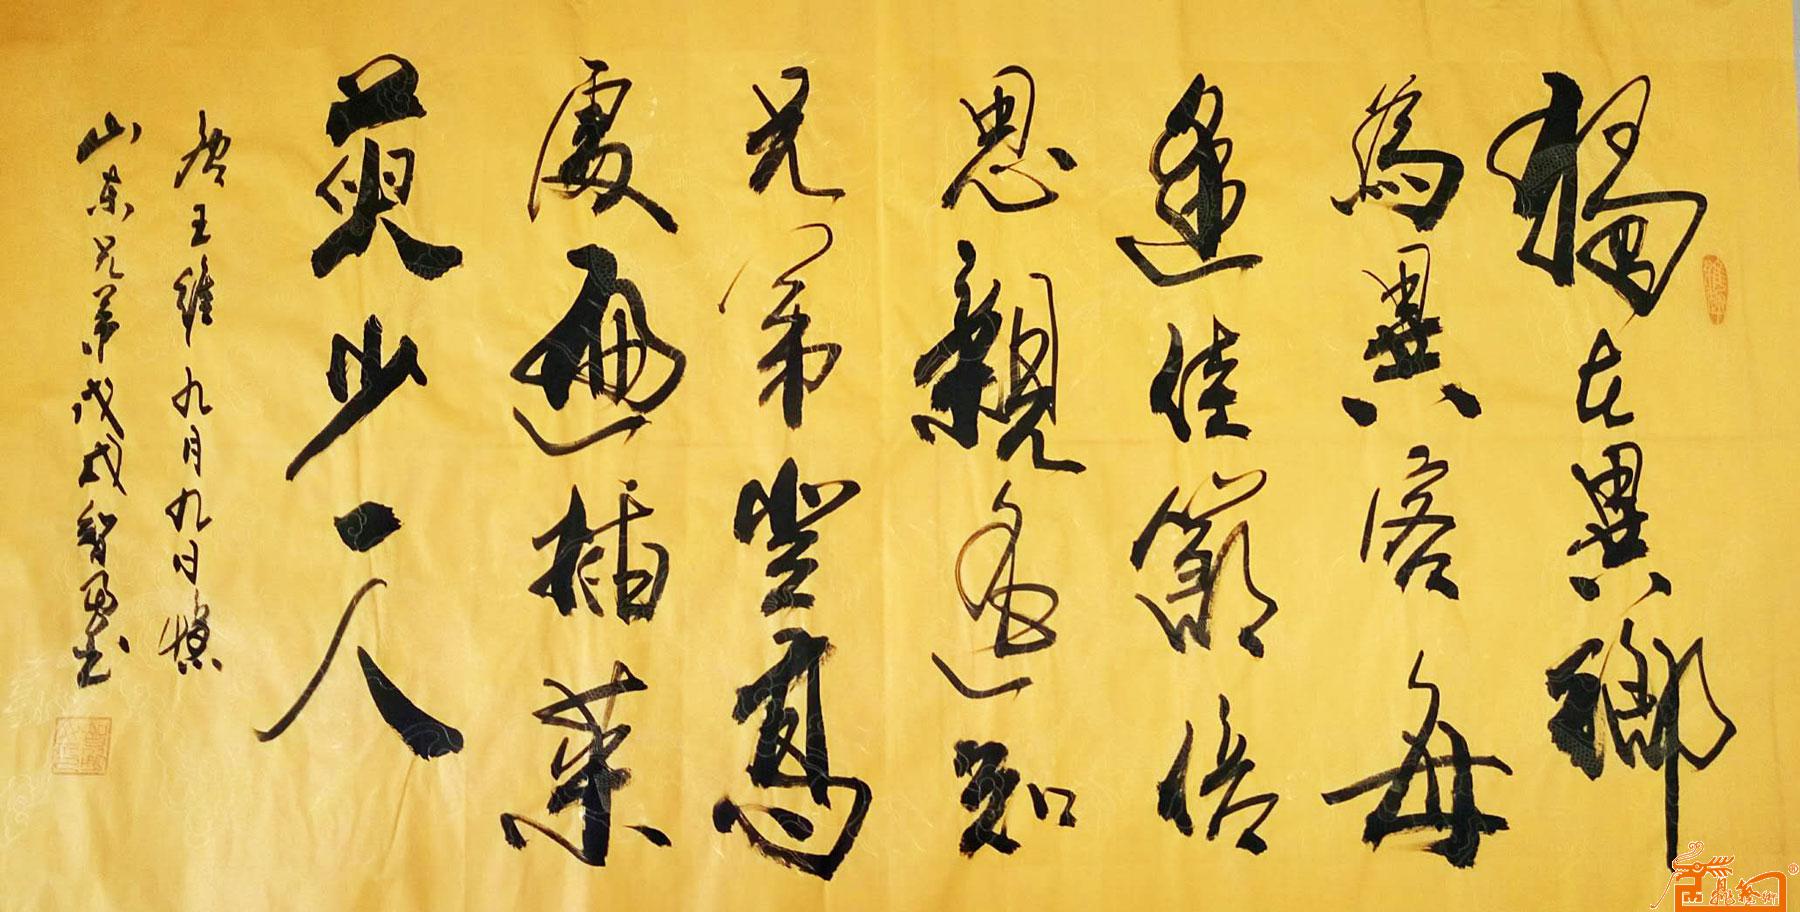 獨在異鄉
為異客每
逢佳節倍
思親遙知
兄弟登高
處遍插茱
萸少一人
唐王維九月九日憶
山東兄弟戊戌智勇书